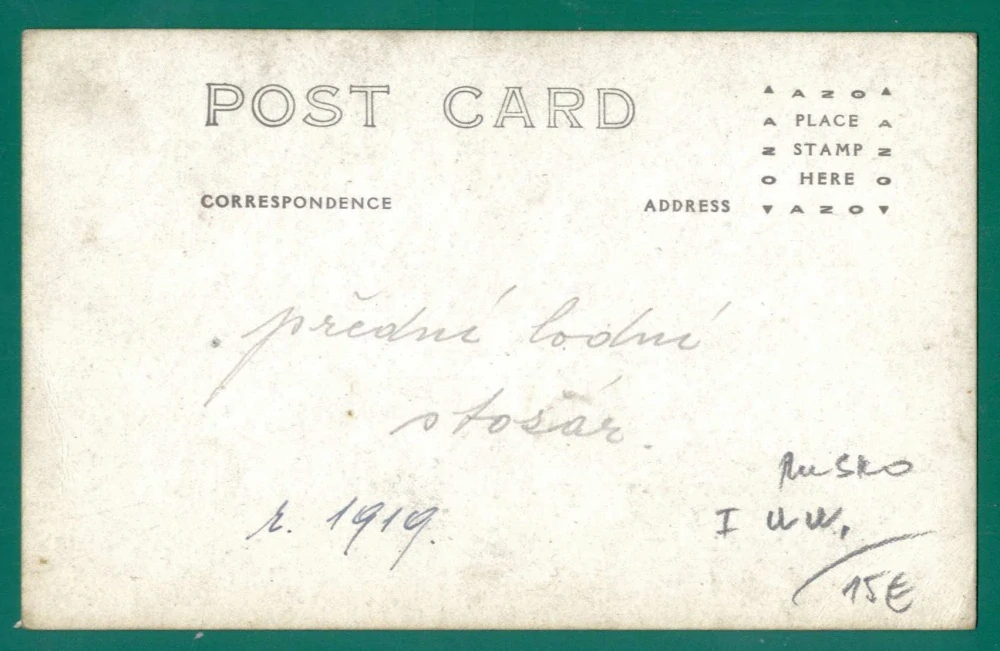 POST CARD
▲ A Z O ▲
A PLACE A
Z STAMP Z
O HERE O
▼ A Z O ▼
CORRESPONDENCE
ADDRESS
přední lodní
stožár.
r. 1919.
RuSKO
I WW.
15€